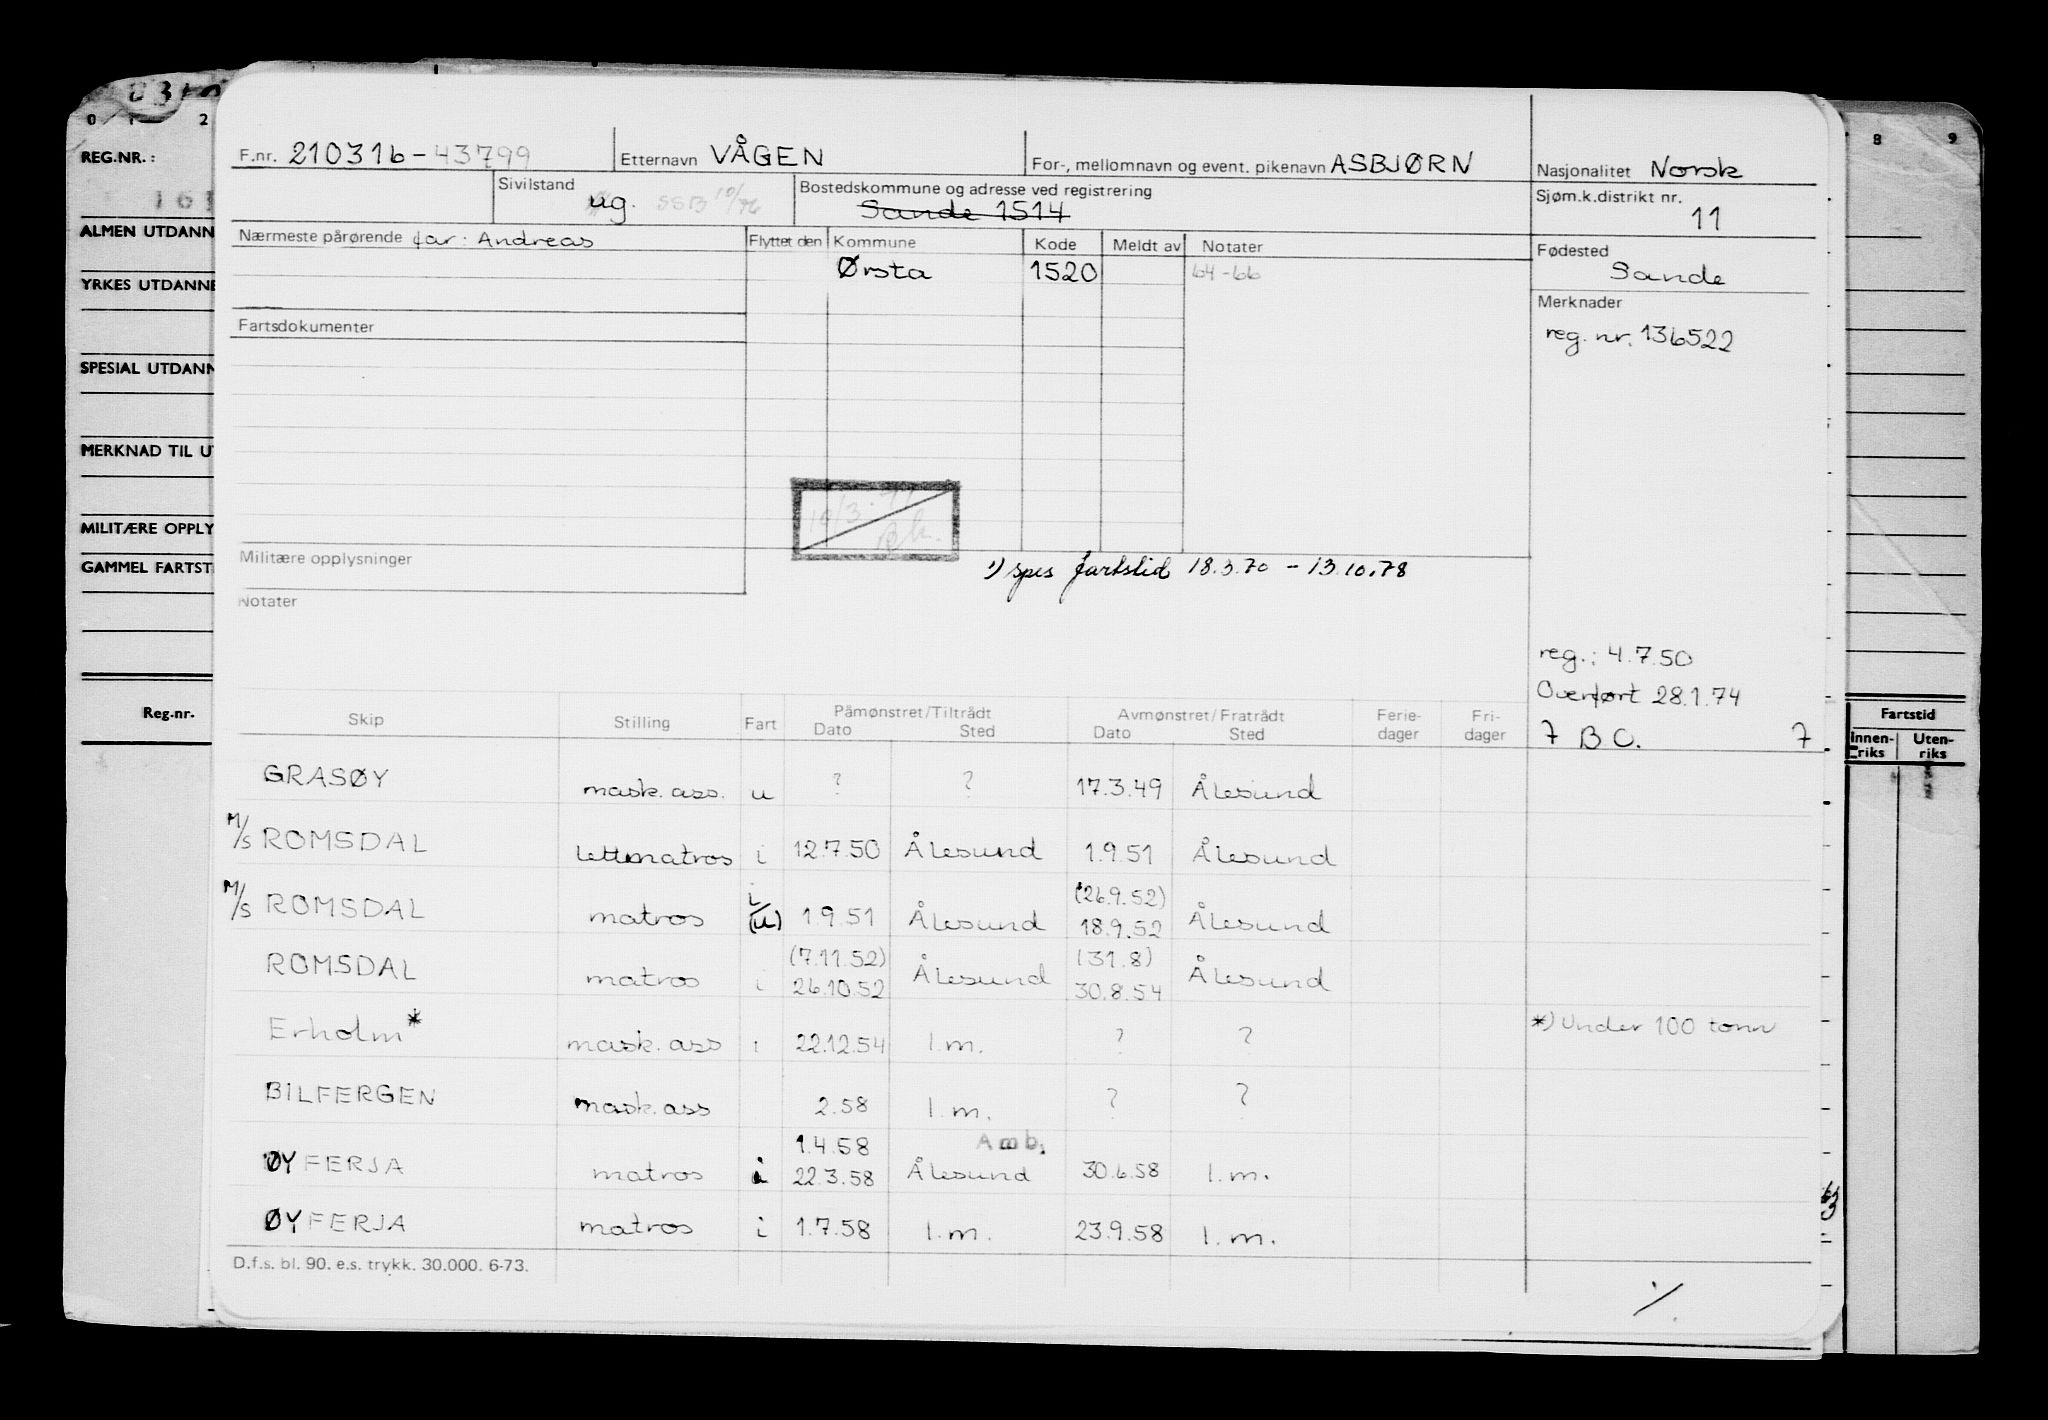 0 1 2 8 9
REG.NR.:
F.nr. 210316-43799 Etternavn VÅGEN For-, mellomnavn og event. pikenavn ASBJØRN Nasjonalitet Norsk
Sivilstand ug. SSB 10/76 Bostedskommune og adresse ved registrering Sande 1514 Sjøm.k.distrikt nr. 11
ALMEN UTDANN
Nærmeste pårørende far: Andreas Flyttet den Kommune Kode Meldt av Notater Fødested
Ørsta 1520 64-66 Sande
YRKES UTDANNE
Merknader
Fartsdokumenter reg. nr. 136522
SPESIAL UTDANN
MERKNAD TIL U
MILITÆRE OPPLY
Militære opplysninger
GAMMEL FARTST
1) spes fartstid 18.3.70 - 13.10.78
Notater
reg.: 4.7.50
Overført 28.1.74
7 B O. 7
Reg.nr. Fartstid
Innen-riks Uten-riks
Skip Stilling Fart Påmønstret/Tiltrådt Avmønstret/Fratrådt Ferie-dager Fri-dager
Dato Sted Dato Sted
GRASØY mask. ass. u ? ? 17.3.49 Ålesund
M/S ROMSDAL lettmatros i 12.7.50 Ålesund 1.9.51 Ålesund
M/S ROMSDAL matros i/(u) 1.9.51 Ålesund (26.9.52) 18.9.52 Ålesund
ROMSDAL matros i (7.11.52) 26.10.52 Ålesund (31.8) 30.8.54 Ålesund
Erholm* mask. ass i 22.12.54 l.m. ? ? *) Under 100 tonn
BILFERGEN mask. ass 2.58 l.m. ? ?
ØYFERJA matros i 1.4.58 22.3.58 Amb. Ålesund 30.6.58 l.m.
ØYFERJA matros i 1.7.58 l.m. 23.9.58 l.m.
D.f.s. bl. 90. e.s. trykk. 30.000. 6-73.